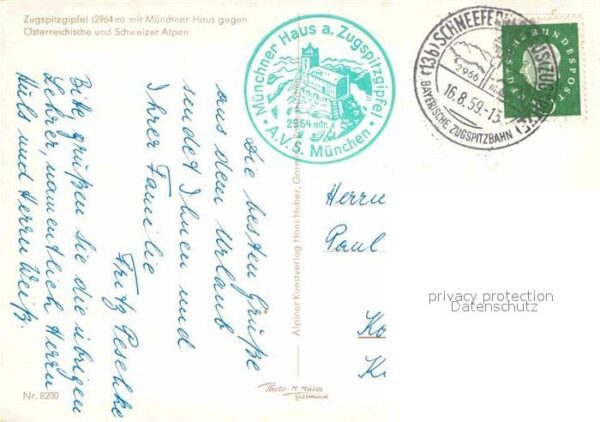 Zugspitzgipfel (2964 m) mit Münchner Haus gegen
Österreichische und Schweizer Alpen
Die besten Grüße
aus dem Urlaub
sendet Ihnen und
Ihrer Familie
Fritz Peschke
Bitte grüßen Sie die übrigen
Lehrer, namentlich Herrn
Hüls und Herrn Weiß.
Nr. 8200
Münchner Haus a. Zugspitzgipfel
2964 mtr.
A.V.S. München
Alpiner Kunstverlag Hans Huber, Garmisch
Photo H. Huber
Garmisch
(13b) SCHNEEFERNERHAUS/ZUGSPITZE
2966
16.8.59-13
BAYERISCHE ZUGSPITZBAHN
DEUTSCHE BUNDESPOST
Herrn
Paul
privacy protection
Datenschutz